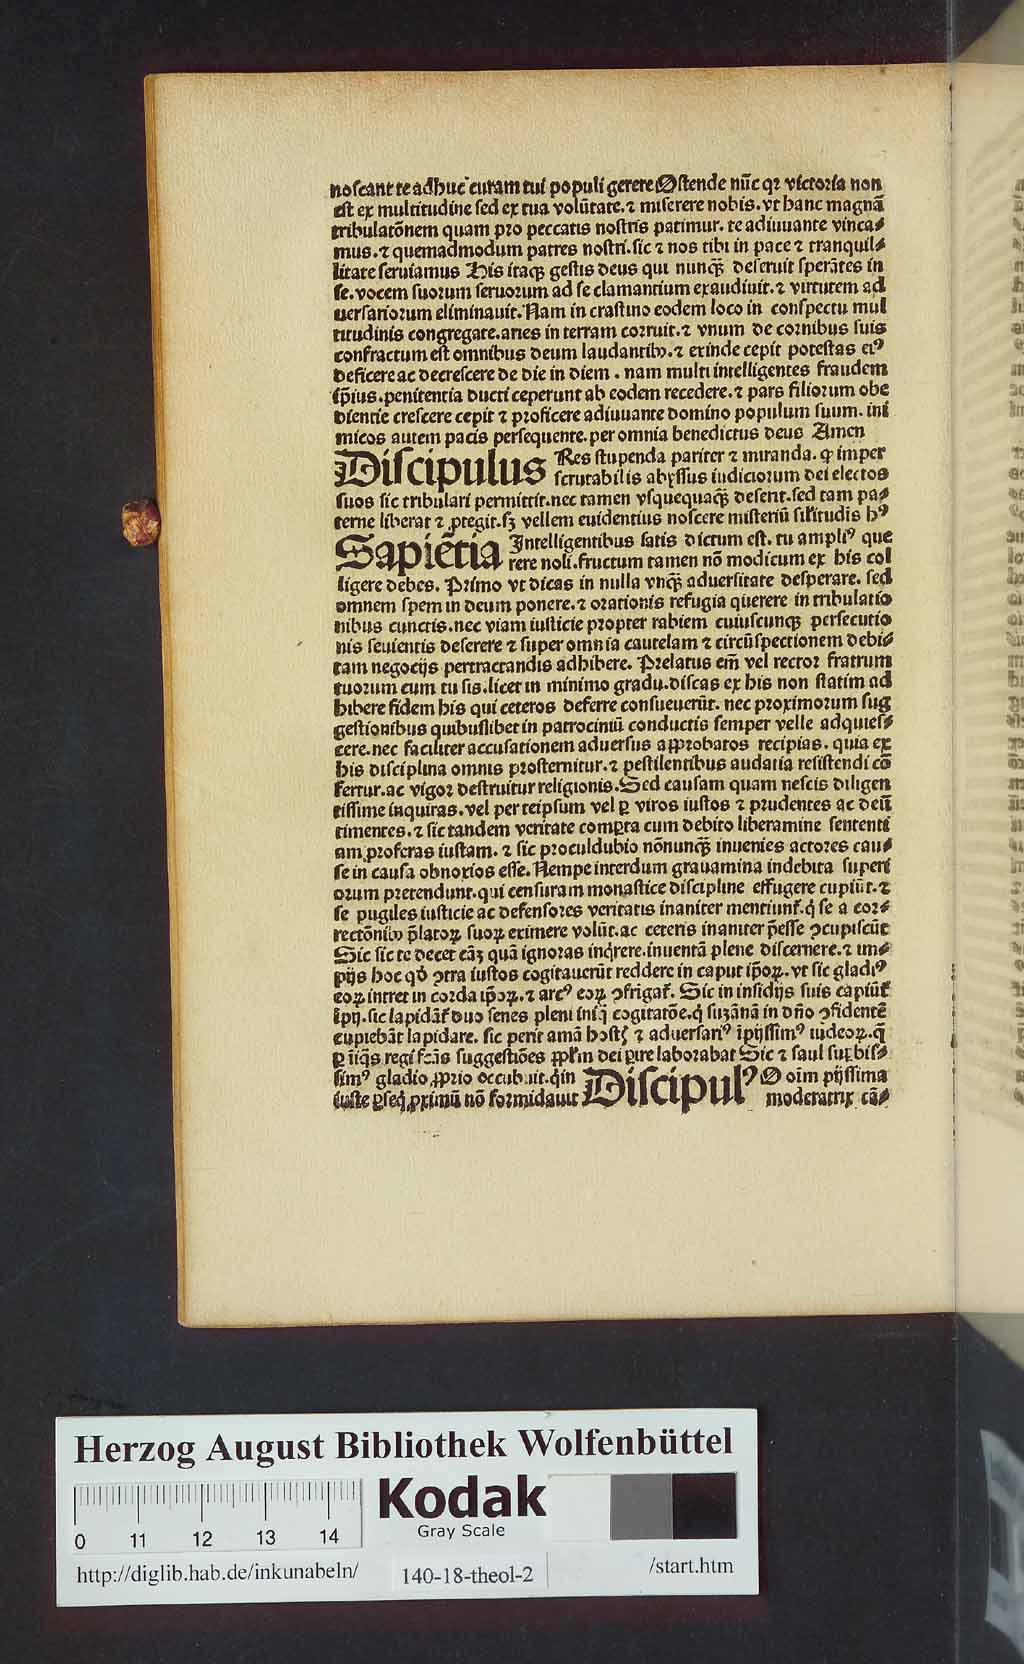 noscant te adhuc curam tui populi gerere Ostende nūc qꝛ victoria non
est ex multitudine sed ex tua volūtate. ⁊ miserere nobis. vt hanc magnā
tribulatōnem quam pro peccatis nostris patimur. te adiuuante vinca⸗
mus. ⁊ quemadmodum patres nostri. sic ⁊ nos tibi in pace ⁊ tranquil⸗
litate seruiamus His itaqꝫ gestis deus qui nunqꝫ̄ deseruit sperātes in
se. vocem suorum seruorum ad se clamantium exaudiuit. ⁊ virtutem ad
uersariorum eliminauit. Nam in crastino eodem loco in conspectu mul
titudinis congregate. aries in terram corruit. ⁊ vnum de cornibus suis
confractum est omnibus deum laudantibꝫ. ⁊ exinde cepit potestas eiꝰ
deficere ac decrescere de die in diem. nam multi intelligentes fraudem
ip̄ius. penitentia ducti ceperunt ab eodem recedere. ⁊ pars filiorum obe
dientie crescere cepit ⁊ proficere adiuuante domino populum suum. ini
micos autem pacis persequente. per omnia benedictus deus Amen
Discipulus Res stupenda pariter ⁊ miranda. ꝙ imper
scrutabilis abyssus iudiciorum dei electos
suos sic tribulari permittit. nec tamen vsquequaqꝫ̄ deserit. sed tam pa⸗
terne liberat ⁊ ꝓtegit. sꝫ vellem euidentius noscere misteriū sil'itudis hꝰ
Sapiētia Intelligentibus satis dictum est. tu ampliꝰ que
rere noli. fructum tamen nō modicum ex his col
ligere debes. Primo vt dicas in nulla vnqꝫ̄ aduersitate desperare. sed
omnem spem in deum ponere. ⁊ orationis refugia querere in tribulatio
nibus cunctis. nec viam iusticie propter rabiem cuiuscunqꝫ persecutio
nis seuientis deserere ⁊ super omnia cautelam ⁊ circūspectionem debi⸗
tam negocijs pertractandis adhibere. Prelatus em̄ vel rector fratrum
tuorum cum tu sis. licet in minimo gradu. discas ex his non statim ad
hibere fidem his qui ceteros deferre consueuerūt. nec proximorum sug
gestionibus quibuslibet in patrociniū conductis semper velle adquies⸗
cere. nec faciliter accusationem aduersus approbatos recipias. quia ex
his disciplina omnis prosternitur. ⁊ pestilentibus audatia resistendi cō
fertur. ac vigor destruitur religionis. Sed causam quam nescis diligen
tissime inquiras. vel per teipsum vel ꝑ viros iustos ⁊ prudentes ac deū
timentes. ⁊ sic tandem veritate comꝑta cum debito liberamine sententi
am proferas iustam. ⁊ sic proculdubio nōnunqꝫ̄ inuenies actores cau⸗
se in causa obnoxios esse. Nempe interdum grauamina indebita superi
orum pretendunt. qui censuram monastice discipline effugere cupiūt. ⁊
se pugiles iusticie ac defensores veritatis inaniter mentiunt᷑. q̇ se a cor⸗
rectōnibꝫ p̄latoꝝ suoꝝ eximere volūt. ac ceteris inaniter p̄esse ꝯcupiscūt
Sic sic te decet eāꝫ quā ignoras inq̇rere. inuentā plene discernere. ⁊ im⸗
pijs hoc qḋ ꝯtra iustos cogitauerūt reddere in caput ip̄oꝝ. vt sic gladiꝰ
eoꝝ intret in corda ip̄oꝝ. ⁊ arcꝰ eoꝝ ꝯfrigat᷑. Sic in insidijs suis capiūt᷑
īpij. sic lapidāt᷑ duo senes pleni iniq̇ cogitatōe. q̇ suzānā in dn̄o ꝯfidentē
cupiebāt lapidare. sic perit amā hostꝭ ⁊ aduersariꝰ īpijssimꝰ iudeoꝝ. q̄
ꝑ iīq̇s regi fcās suggestiōes ꝓplm̄ dei ꝑire laborabat Sic ⁊ saul suꝑbis⸗
simꝰ gladio ꝓprio occubuit. q̇ in
iuste ꝑseq̇ ꝓximū nō formidauit Discipulꝰ O oīm pijssima
moderatrix cā⸗
Herzog August Bibliothek Wolfenbüttel
0 11 12 13 14
Kodak
Gray Scale
http://diglib.hab.de/inkunabeln/ 140-18-theol-2 /start.htm